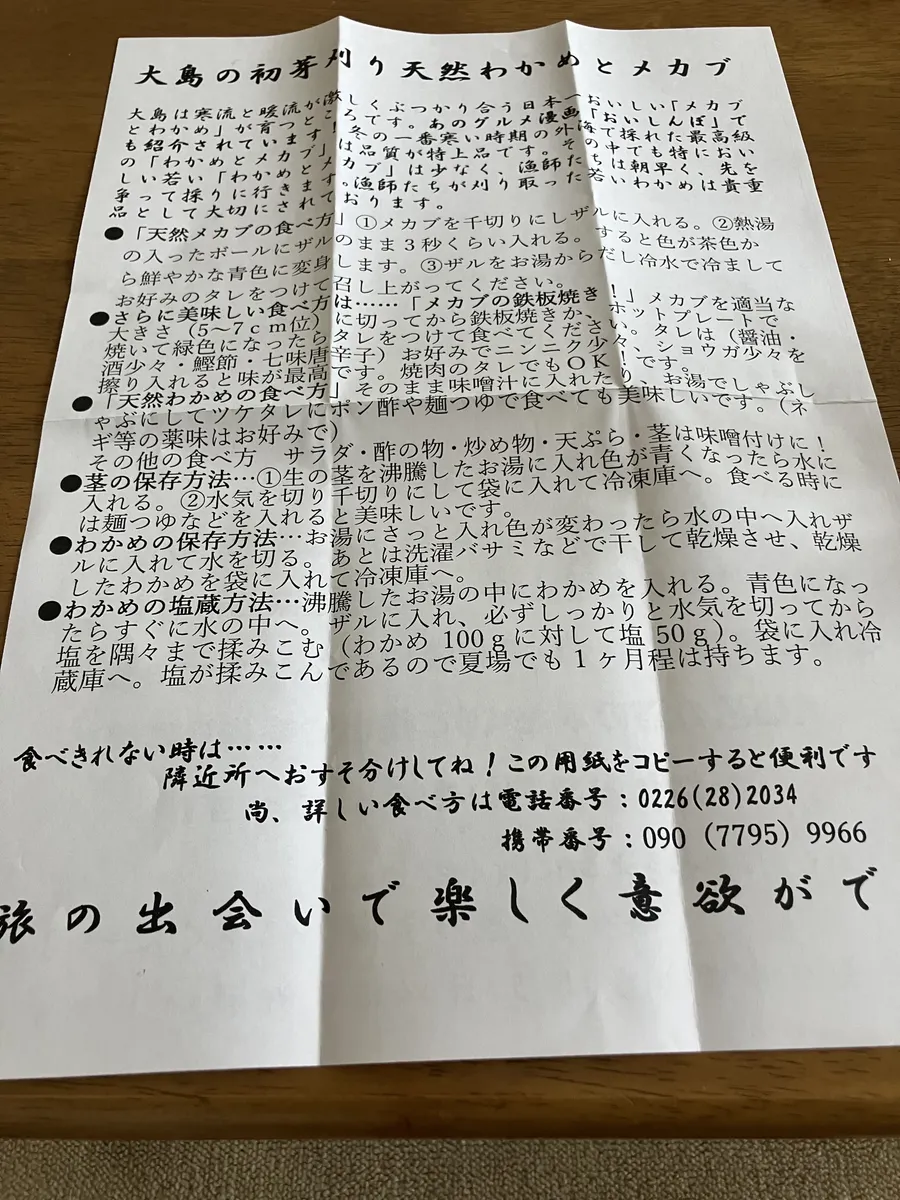 大島の初芽刈り天然わかめとメカブ
大島は寒流と暖流が激しくぶつかり合う日本一おいしい「メカブ
とわかめ」が育つところです。あのグルメ漫画「おいしんぼ」で
も紹介されています！冬の一番寒い時期の外海で採れた最高級
の「わかめとメカブ」は品質が特上品です。その中でも特においしい
しい若い「わかめとメカブ」は少なく、漁師たちは朝早く、先を
争って採りに行きます。漁師たちが刈り取った若いわかめは貴重
品として大切にされております。
●「天然メカブの食べ方」①メカブを千切りにしザルに入れる。②熱湯
の入ったボールにザルのまま３秒くらい入れる。すると色が茶色か
ら鮮やかな青色に変身します。③ザルをお湯からだし冷水で冷まして
お好みのタレをつけて召し上がってください。
●さらに美味しい食べ方は……「メカブの鉄板焼き！」メカブを適当な
大きさ（5～7ｃｍ位）に切ってから鉄板焼きか、ホットプレートで
焼いて緑色になったらタレをつけて食べてください。タレは（醤油・
酒少々・鰹節・七味唐辛子）お好みでニンニク少々、ショウガ少々を
擦り入れると味が最高です。焼肉のタレでもＯＫ！です。
●「天然わかめの食べ方」そのまま味噌汁に入れたり、お湯でしゃぶし
ゃぶにしてツケタレにポン酢や麺つゆで食べても美味しいです。（ネ
ギ等の薬味はお好みで）
その他の食べ方　サラダ・酢の物・炒め物・天ぷら・茎は味噌付けに！
●茎の保存方法…①生の茎を沸騰したお湯に入れ色が青くなったら水に
入れる。②水気を切り千切りにして袋に入れて冷凍庫へ。食べる時に
は麺つゆなどを入れると美味しいです。
●わかめの保存方法…お湯にさっと入れ色が変わったら水の中へ入れザ
ルに入れて水を切る。あとは洗濯バサミなどで干して乾燥させ、乾燥
したわかめを袋に入れて冷凍庫へ。
●わかめの塩蔵方法…沸騰したお湯の中にわかめを入れる。青色になっ
たらすぐに水の中へ。ザルに入れ、必ずしっかりと水気を切ってから
塩を隅々まで揉みこむ（わかめ 100ｇに対して塩 50ｇ）。袋に入れ冷
蔵庫へ。塩が揉みこんであるので夏場でも１ヶ月程は持ちます。
食べきれない時は……
隣近所へおすそ分けしてね！この用紙をコピーすると便利です
尚、詳しい食べ方は電話番号：0226(28)2034
携帯番号：090（7795）9966
旅の出会いで楽しく意欲がで